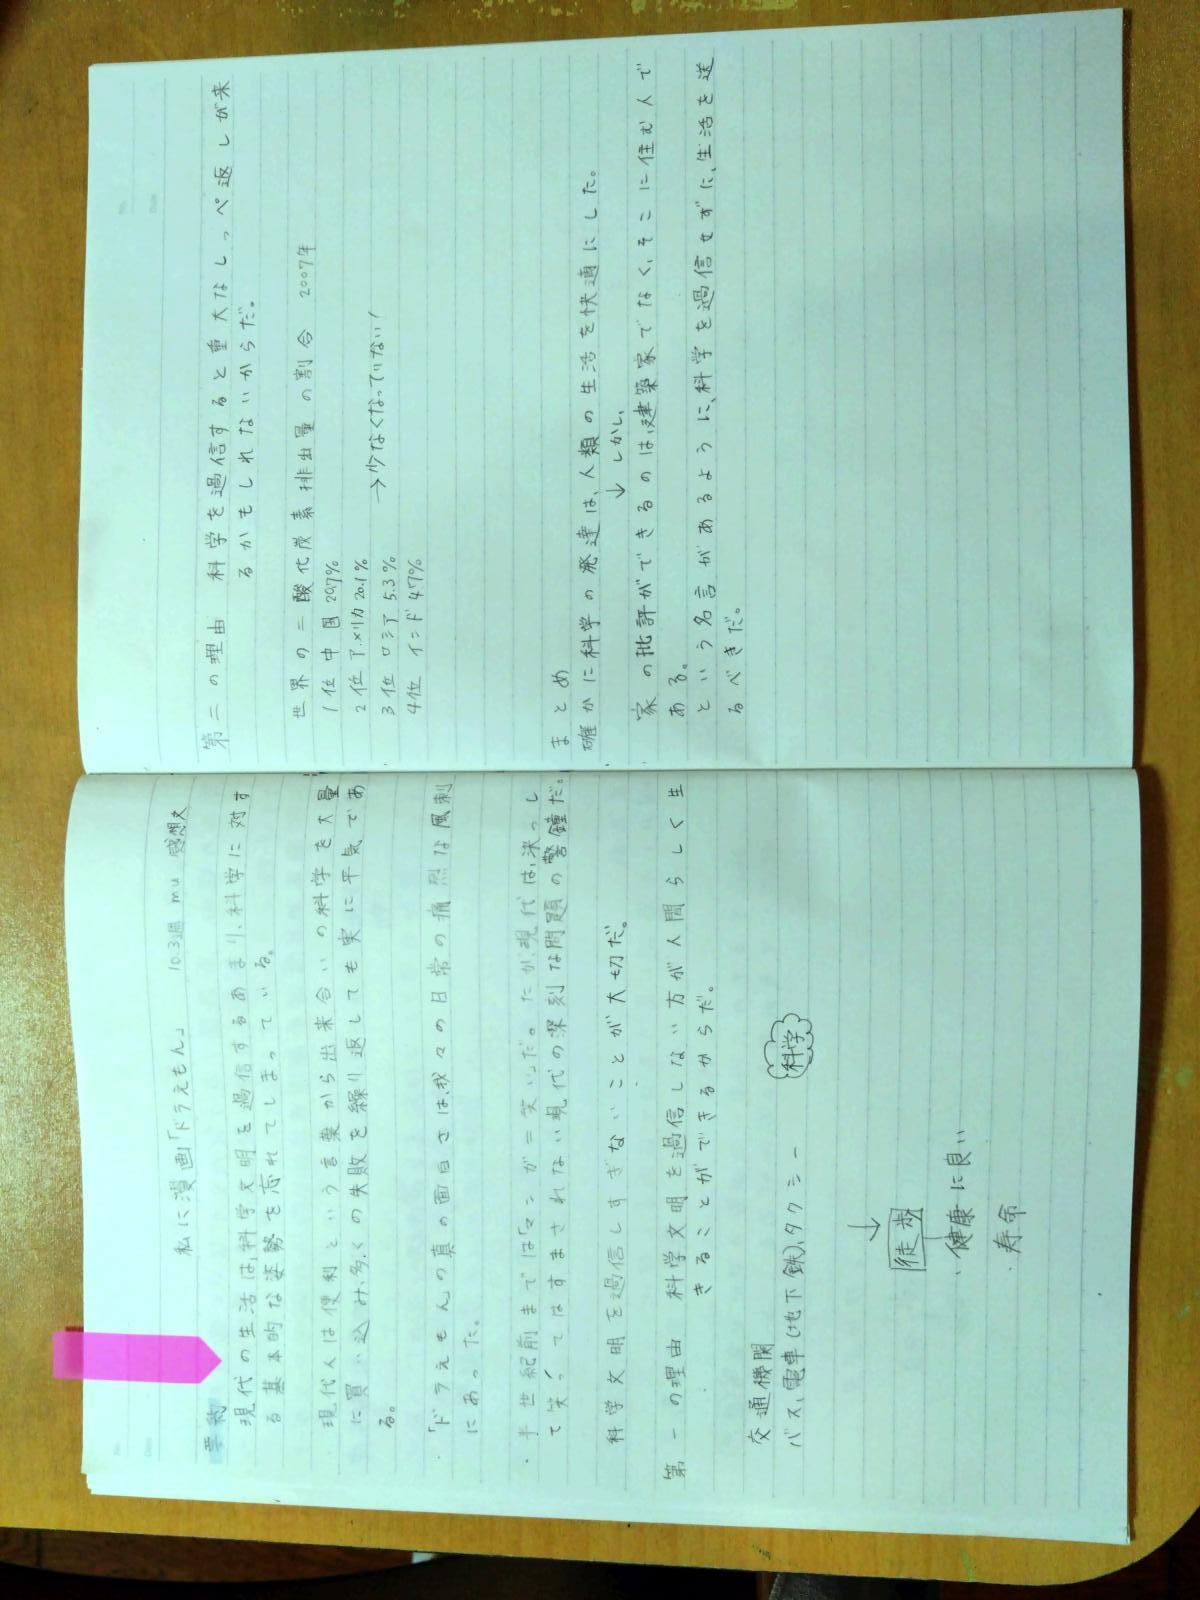 私に漫画「ドラえもん」 10.3週 mu 感想文
要約
現代の生活は、科学文明を過信するあまり、科学に対す
る基本的な姿勢を忘れてしまっている。
現代人は便利という言葉から出来合いの科学を大量
に買い込み、多くの失敗を繰り返しても実に平気であ
る。
・「ドラえもんの真の面白さは、我々の日常の痛烈な風刺
にあった。
・半世紀前までは「マンガ=笑い」だ。だが、現代は、決っし
て笑ってはすまされない現代の深刻な問題の警鐘だ。
科学文明を過信しすぎないことが大切だ。
第一の理由 科学文明を過信しない方が人間らしく生
きることができるからだ。
交通機関
バス、電車(地下鉄)、タクシー
科学
↓
徒歩
・健康に良い
・寿命
No.
Date
第二の理由 科学を過信すると重大なしっぺ返しが来
るかもしれないからだ。
世界の二酸化炭素排出量の割合 2007年
1位 中国 20.7%
2位 アメリカ 20.1%
3位 ロシア 5.3% →少なくなっていない!
4位 インド 4.7%
まとめ
確かに科学の発達は、人類の生活を快適にした。
↓しかし、
家の批評ができるのは、建築家でなく、そこに住む人で
ある。
という名言があるように、科学を過信せずに、生活を送
るべきだ。